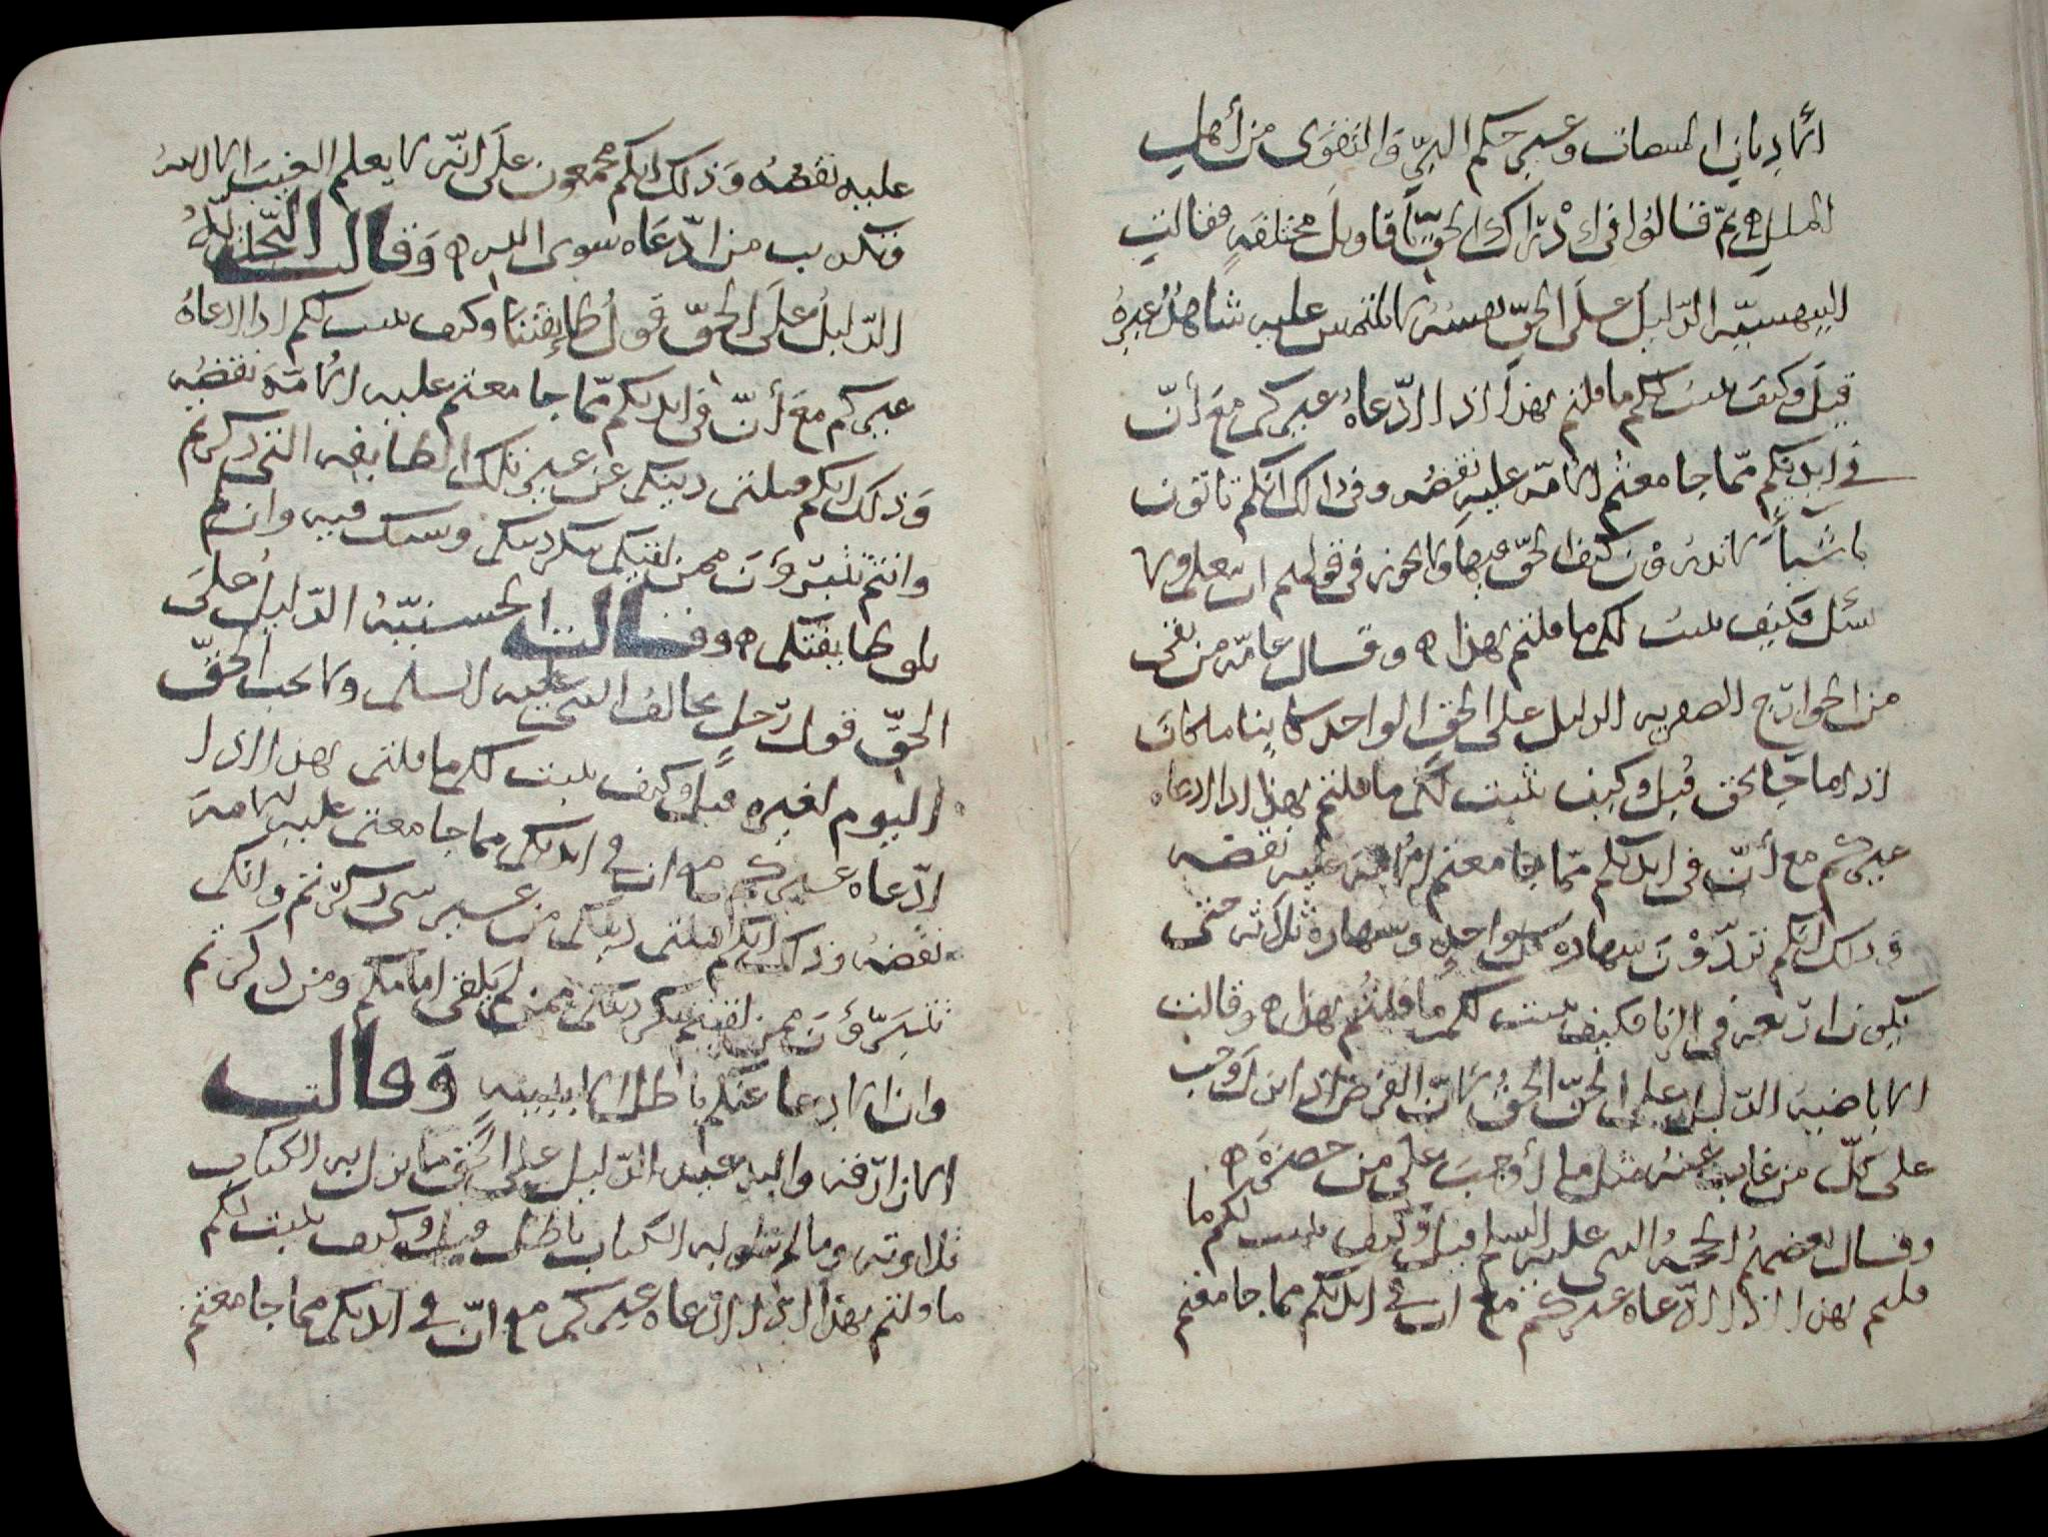 وعيركم البرّ والتقوى من أهل
الملل ثمّ قالوا في إدراك الحقّ أقاويل مختلفة فقالت
البيهسيّة الدّليل على الحقّ نفسه لا يلتمس عليه شاهد غيره
قيل وكيف يثبت لكم ما قلتم بهذا اذا ادّعاه غيركم مع أنّ
في ايديكم ممّا جامعتم الامّة عليه نقضه وفي ذاك انّكم تاتون
باشيآء لا تدرون كيف الحقّ فيها
سئل فكيف يثبت لكم ما قلتم بهذا وقال عامّة من بقي
من الخوارج الصفرية الدليل على الحق الواحد كاينا ما كان
اذا ما جا بالحق قيل وكيف يثبت لكم ما قلتم بهذا اذا ادعاه
غيركم مع أنّ في ايديكم ممّا جامعتم الامة عليه نقضه
وذلك انكم تردّون شهادة كل واحد وشهادة ثلاثة حتى
يكون اربعة في الزنا فكيف يثبت لكم ما قلتم بهذا وقالت
الاباضية الدّليل على الحقّ الحقّ لانّ الفرض اذا نزل وجب
على كلّ من غاب عنه مثل ما أوجب على من حضره
وقال بعضهم الحجّة النبي عليه السلم قيل وكيف يثبت لكم ما
قلتم بهذا اذا ادّعاه غيركم مع ان في ايديكم مما جامعتم
عليه نقضه وذلك انكم مجمعون على انّه لا يعلم الغيب الا الله
وتكذيب من ادّعاه سوى الله وقالت
الدّليل على الحقّ قول طايفتنا وكيف يثبت لكم اذا ادعاه
غيركم مع أنّ في ايديكم ممّا جامعتم عليه الامّة نقضه
وذلك انكم قبلتم دينكم عن غير تلك الطايفة التي ذكرتم
وانتم تتبرّؤن ممن لقيكم ينكر دينكم وشك فيه وان لم
يلق طايفتكم وقالت الحسنيّة الدّليل على
الحقّ قول رجل يخالف النبي عليه السلم ولا يجب الحقّ
اليوم لغيره قيل وكيف يثبت لكم ما قلتم بهذا اذا
ادّعاه غيركم مع ان في ايديكم مما جامعتم عليه الامة
نقضه وذلك انكم قبلتم دينكم من غير من ذكرتم وانكم
تتبرّؤن ممن لقيتم ينكر دينكم ممن لم يلق امامكم ومن ذكرتم
وان الادعا عندكم باطل الا ببينة وقالت
الازارقة الدّليل على الحق ما نزل به الكتاب
تلاوته وما لم يتلو به الكتاب باطل قيل وكيف يثبت لكم
ما قلتم بهذا اذا ادّعاه غيركم مع انّ في ايديكم مما جامعتم